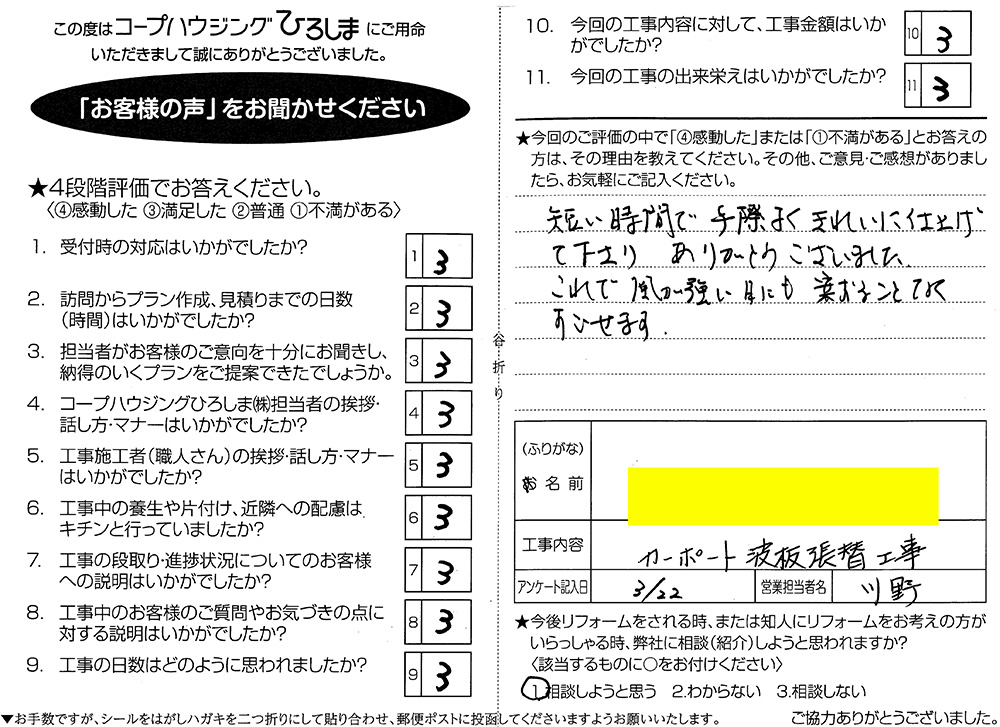 この度はコープハウジングひろしまにご用命
いただきまして誠にありがとうございました。
「お客様の声」をお聞かせください
★4段階評価でお答えください。
〈④感動した ③満足した ②普通 ①不満がある〉
1. 受付時の対応はいかがでしたか?
1 3
2. 訪問からプラン作成、見積りまでの日数
(時間)はいかがでしたか?
2 3
3. 担当者がお客様のご意向を十分にお聞きし、
納得のいくプランをご提案できたでしょうか。
3 3
4. コープハウジングひろしま㈱担当者の挨拶・
話し方・マナーはいかがでしたか?
4 3
5. 工事施工者(職人さん)の挨拶・話し方・マナー
はいかがでしたか?
5 3
6. 工事中の養生や片付け、近隣への配慮は
キチンと行っていましたか?
6 3
7. 工事の段取り・進捗状況についてのお客様
への説明はいかがでしたか?
7 3
8. 工事中のお客様のご質問やお気づきの点に
対する説明はいかがでしたか?
8 3
9. 工事の日数はどのように思われましたか?
9 3
▼お手数ですが、シールをはがしハガキを二つ折りにして貼り合わせ、郵便ポストに投函してくださいますようお願いいたします。
谷折り
10. 今回の工事内容に対して、工事金額はいか
がでしたか?
10 3
11. 今回の工事の出来栄えはいかがでしたか?
11 3
★今回のご評価の中で「④感動した」または「①不満がある」とお答えの
方は、その理由を教えてください。その他、ご意見・ご感想がありまし
たら、お気軽にご記入ください。
短い時間で 手際よく きれいに仕上げ
て下さり ありがとうございました。
これで 風が強い日にも 案ずることなく
すごせます.
(ふりがな)
お名前
工事内容 カーポート 波板張替工事
アンケート記入日 3/22 営業担当者名 川野
★今後リフォームをされる時、または知人にリフォームをお考えの方が
いらっしゃる時、弊社に相談(紹介)しようと思われますか?
〈該当するものに○をお付けください〉
1.相談しようと思う 2.わからない 3.相談しない
ご協力ありがとうございました。